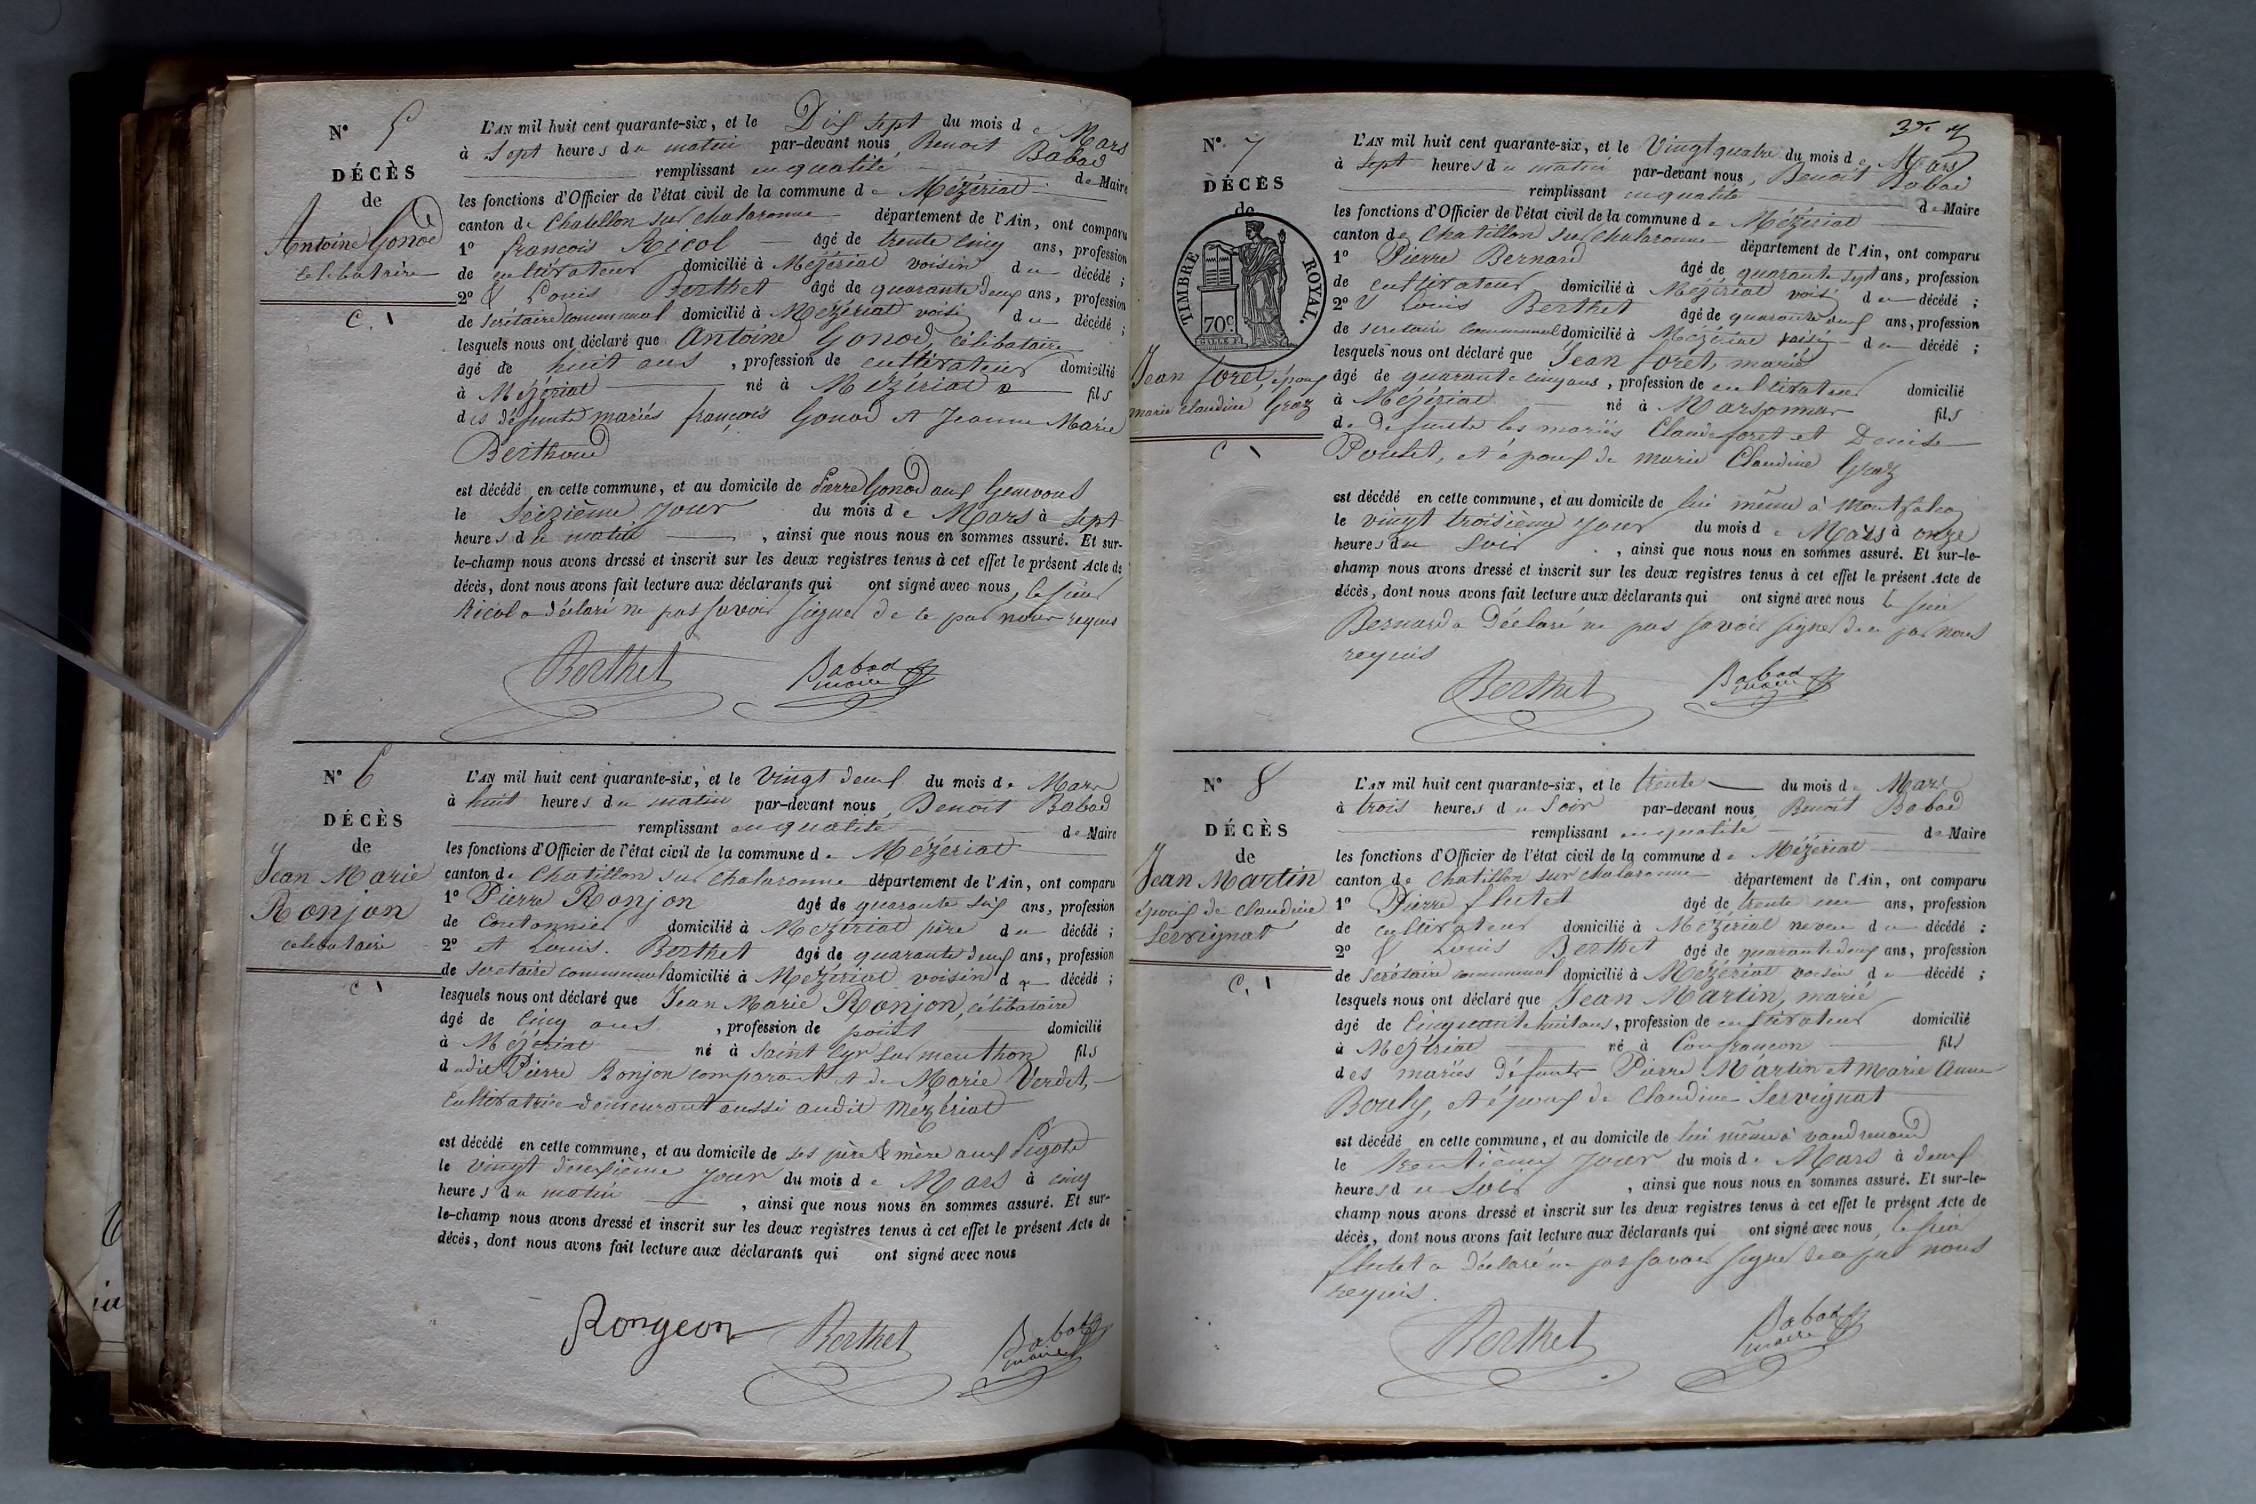 N° 5
DÉCÈS
de
Antoine Gonod
célibataire
C. 1
L'AN mil huit cent quarante-six, et le Dix sept du mois de Mars
à Sept heures du matin par-devant nous, Benoit Babad
remplissant en qualité de Maire
les fonctions d'Officier de l'état civil de la commune de Mézériat
canton de Chatillon sur chalaronne département de l'Ain, ont comparu
1° françois Ricol âgé de trente cinq ans, profession
de cultivateur domicilié à Mézériat voisin du décédé ;
2° & Louis Berthet âgé de quarante deux ans, profession
de secrétaire communal domicilié à Mézériat voisin du décédé ;
lesquels nous ont déclaré que Antoine Gonod, célibataire
âgé de huit ans, profession de cultivateur domicilié
à Mézériat né à Mézériat fils
des défunts mariés françois Gonod et Jeanne Marie
Berthoud
est décédé en cette commune, et au domicile de Pierre Gonod aux Genevous
le Seizième jour du mois de Mars à sept
heures du matin, ainsi que nous nous en sommes assuré. Et sur-
le-champ nous avons dressé et inscrit sur les deux registres tenus à cet effet le présent Acte de
décès, dont nous avons fait lecture aux déclarants qui ont signé avec nous, le sieur
Ricol a déclaré ne pas savoir signer de ce par nous requis
Berthet Babad
maire
N° 6
DÉCÈS
de
Jean Marie
Ronjon
célibataire
C. 1
L'AN mil huit cent quarante-six, et le vingt deux du mois de Mars
à huit heures du matin par-devant nous, Benoit Babad
remplissant en qualité de Maire
les fonctions d'Officier de l'état civil de la commune de Mézériat
canton de Chatillon sur chalaronne département de l'Ain, ont comparu
1° Pierre Ronjon âgé de quarante six ans, profession
de Cantonnier domicilié à Mézériat père du décédé ;
2° et Louis Berthet âgé de quarante deux ans, profession
de secrétaire communal domicilié à Mézériat voisin du décédé ;
lesquels nous ont déclaré que Jean Marie Ronjon, célibataire
âgé de cinq ans, profession de point domicilié
à Mézériat né à Saint Cyr sur menthon fils
dudit Pierre Ronjon comparant et de Marie Verdet,
cultivatrice demeurant aussi audit Mézériat
est décédé en cette commune, et au domicile de ses père & mère aux Pigots
le vingt deuxième jour du mois de Mars à cinq
heures du matin, ainsi que nous nous en sommes assuré. Et sur-
le-champ nous avons dressé et inscrit sur les deux registres tenus à cet effet le présent Acte de
décès, dont nous avons fait lecture aux déclarants qui ont signé avec nous
Rongeon Berthet Babad
maire
N° 7
DÉCÈS
de
TIMBRE ROYAL.
70c
Jean foret époux
marie claudine Graz
C. 1
L'AN mil huit cent quarante-six, et le Vingt quatre du mois de Mars
à sept heures du matin par-devant nous, Benoit Babad
remplissant en qualité de Maire
les fonctions d'Officier de l'état civil de la commune de Mézériat
canton de Chatillon sur chalaronne département de l'Ain, ont comparu
1° Pierre Bernard âgé de quarante sept ans, profession
de cultivateur domicilié à Mézériat voisin du décédé ;
2° & Louis Berthet âgé de quarante deux ans, profession
de secretaire communal domicilié à Mézériat voisin du décédé ;
lesquels nous ont déclaré que Jean foret, marié
âgé de quarante cinq ans, profession de cultivateur domicilié
à Mézériat né à Marsonnas fils
de defunts les mariés Claude foret et Denise
Poulet, et époux de marie Claudine Graz
est décédé en cette commune, et au domicile de lui même à Montfalcon
le vingt troisième jour du mois de Mars à onze
heures du Soir, ainsi que nous nous en sommes assuré. Et sur-le-
champ nous avons dressé et inscrit sur les deux registres tenus à cet effet le présent Acte de
décès, dont nous avons fait lecture aux déclarants qui ont signé avec nous le sieur
Bernard a Déclaré ne pas savoir signer de ce par nous
requis
Berthet Babad
maire
N° 8
DÉCÈS
de
Jean Martin
époux de Claudine
Servignat
C. 1
L'AN mil huit cent quarante-six, et le trente du mois de Mars
à trois heures du Soir par-devant nous, Benoit Babad
remplissant en qualité de Maire
les fonctions d'Officier de l'état civil de la commune de Mézériat
canton de Chatillon sur chalaronne département de l'Ain, ont comparu
1° Pierre flutet âgé de trente un ans, profession
de cultivateur domicilié à Mézériat neveu du décédé ;
2° & Louis Berthet âgé de quarante deux ans, profession
de secrétaire communal domicilié à Mézériat voisin du décédé ;
lesquels nous ont déclaré que Jean Martin, marié
âgé de Cinquante huit ans, profession de cultivateur domicilié
à Mézériat né à Confrançon fils
des mariés défunts Pierre Martin et Marie Anne
Bouly, et époux de Claudine Servignat
est décédé en cette commune, et au domicile de lui même à vaudrenand
le trentième jour du mois de Mars à deux
heures du Soir, ainsi que nous nous en sommes assuré. Et sur-le-
champ nous avons dressé et inscrit sur les deux registres tenus à cet effet le présent Acte de
décès, dont nous avons fait lecture aux déclarants qui ont signé avec nous, le sieur
flutet a déclaré ne pas savoir signer de ce par nous
requis.
Berthet Babad
maire